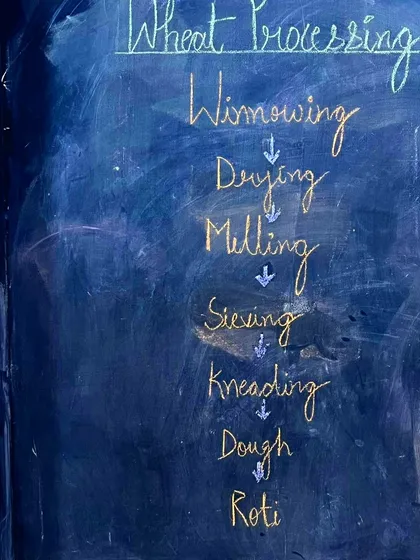 Wheat Processing
Winnowing
Drying
Milling
Sieving
Kneading
Dough
Roti